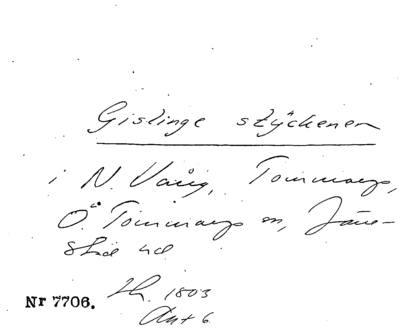 Gislinge styckenen
i N. Vång, Tommarps,
Ö. Tommarps sn, Järre-
stad hd
Nr 7706. 1803
Akt 6